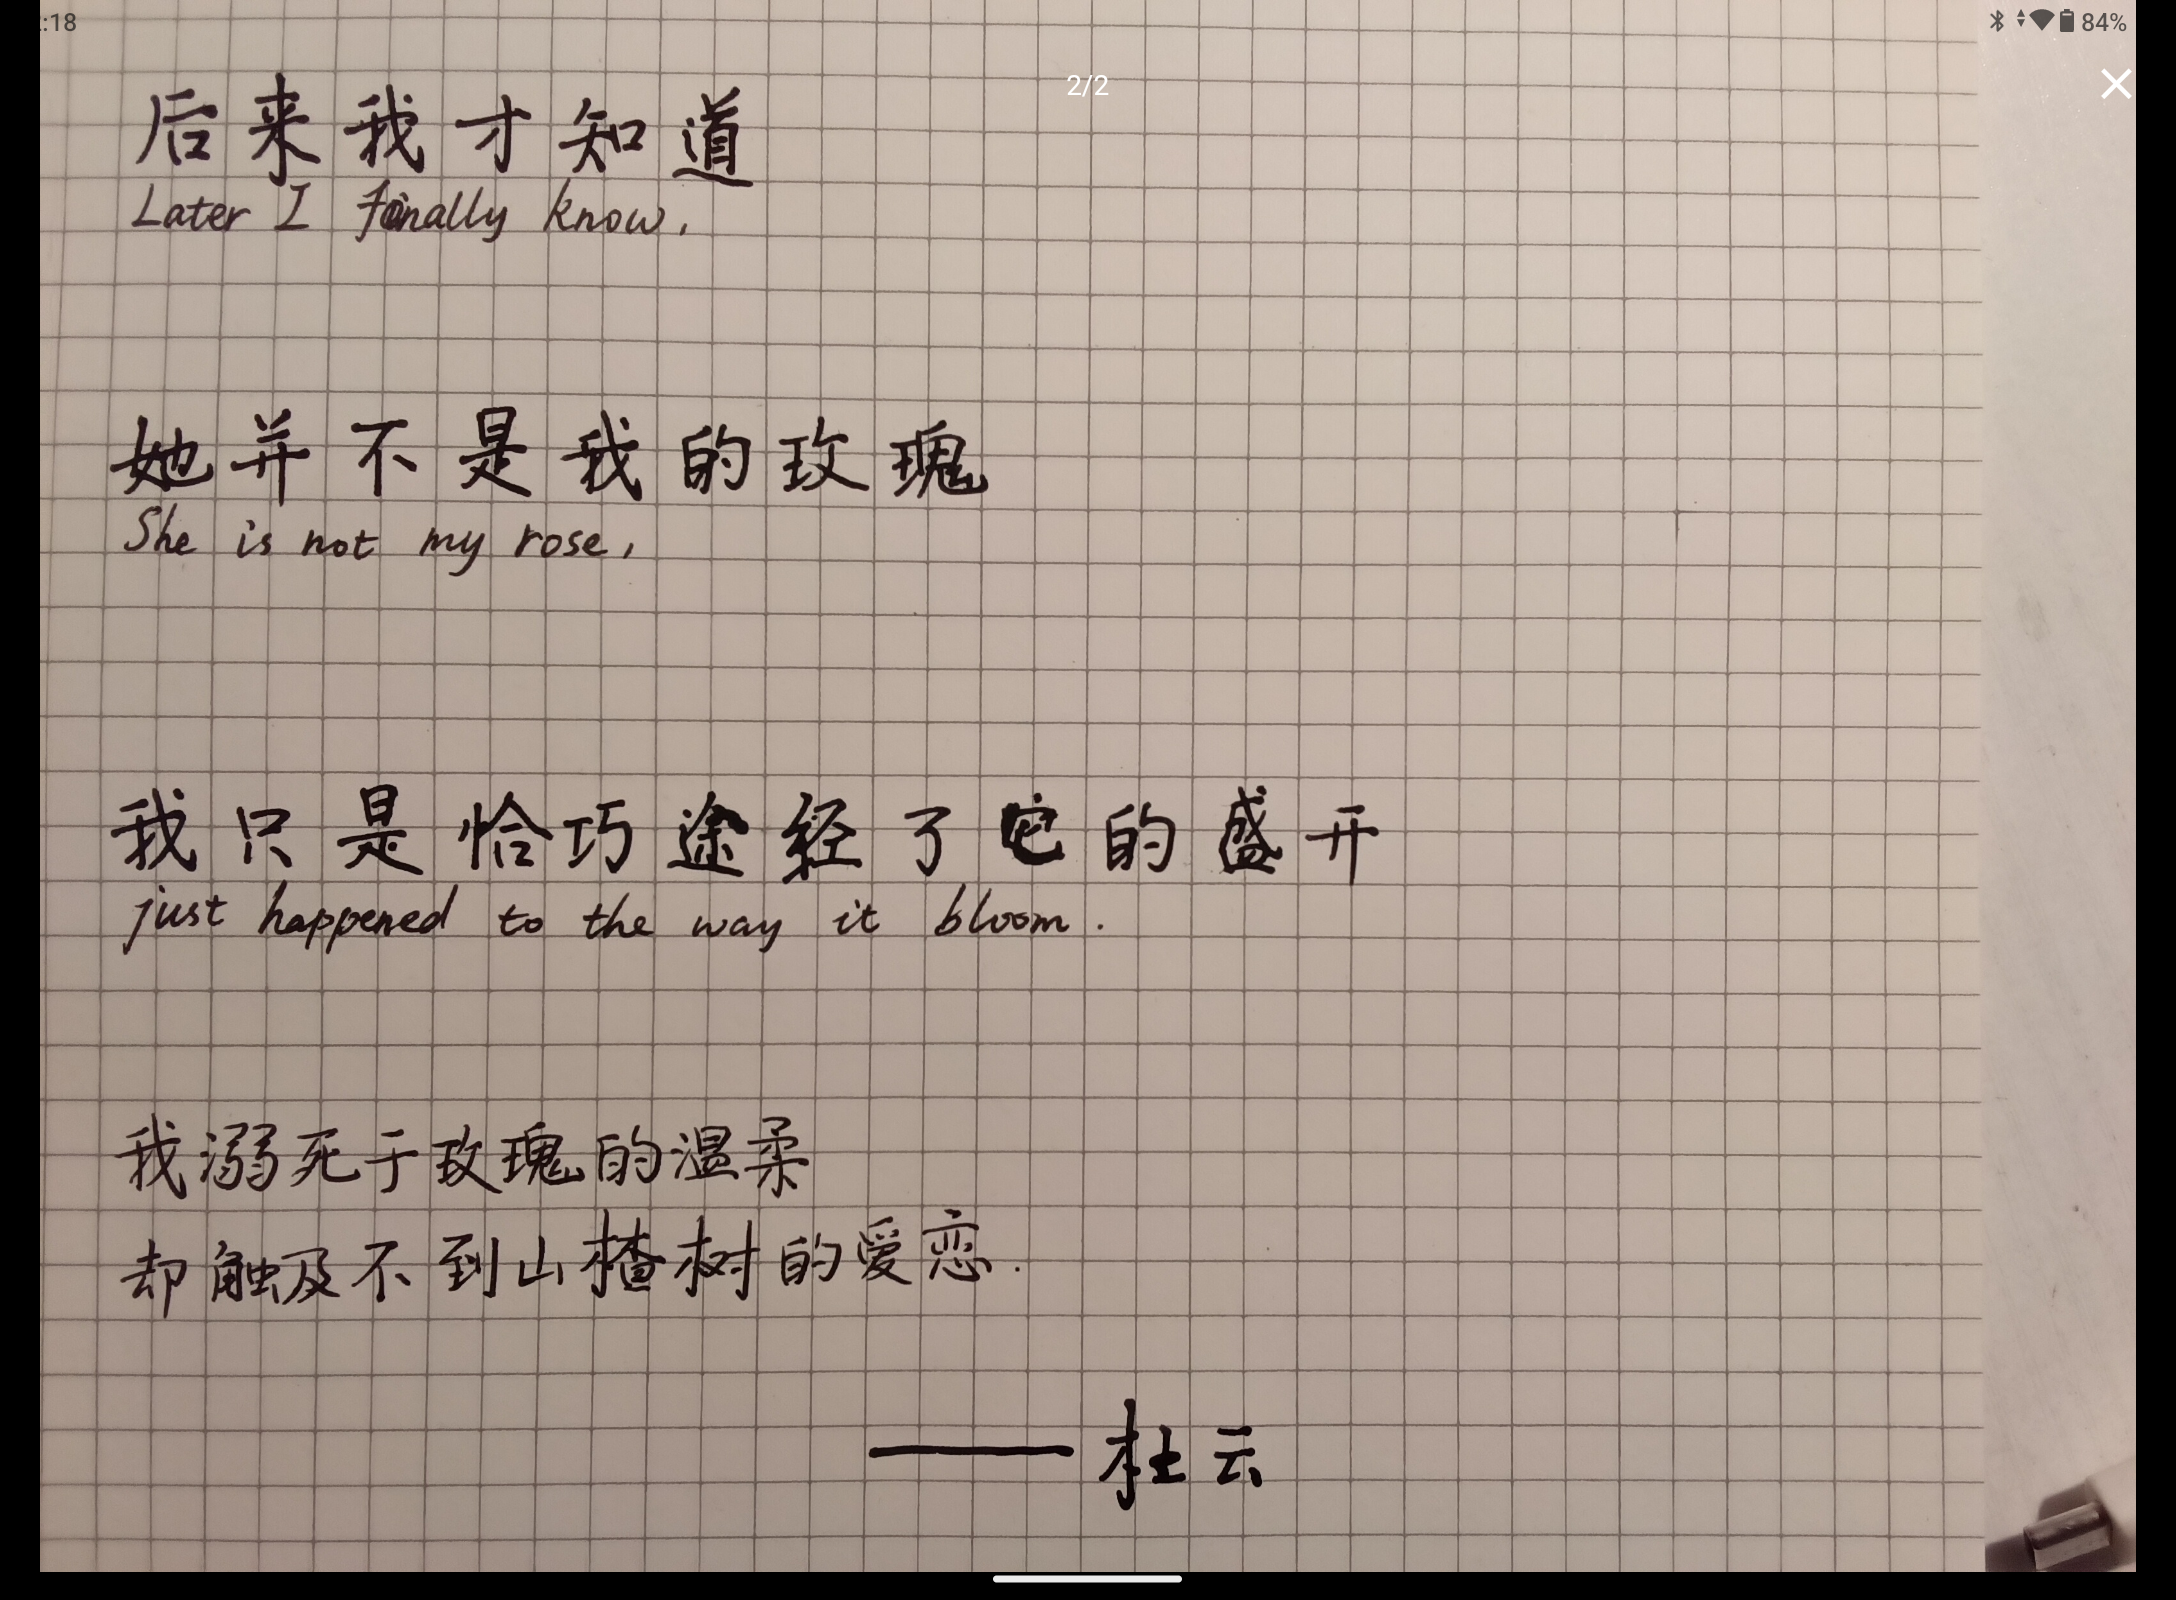 :18
84%
2/2
后来我才知道
Later I finally know,
她并不是我的玫瑰
She is not my rose,
我只是恰巧途经了它的盛开
just happened to the way it bloom.
我溺死于玫瑰的温柔
却触及不到山楂树的爱恋.
——杜云